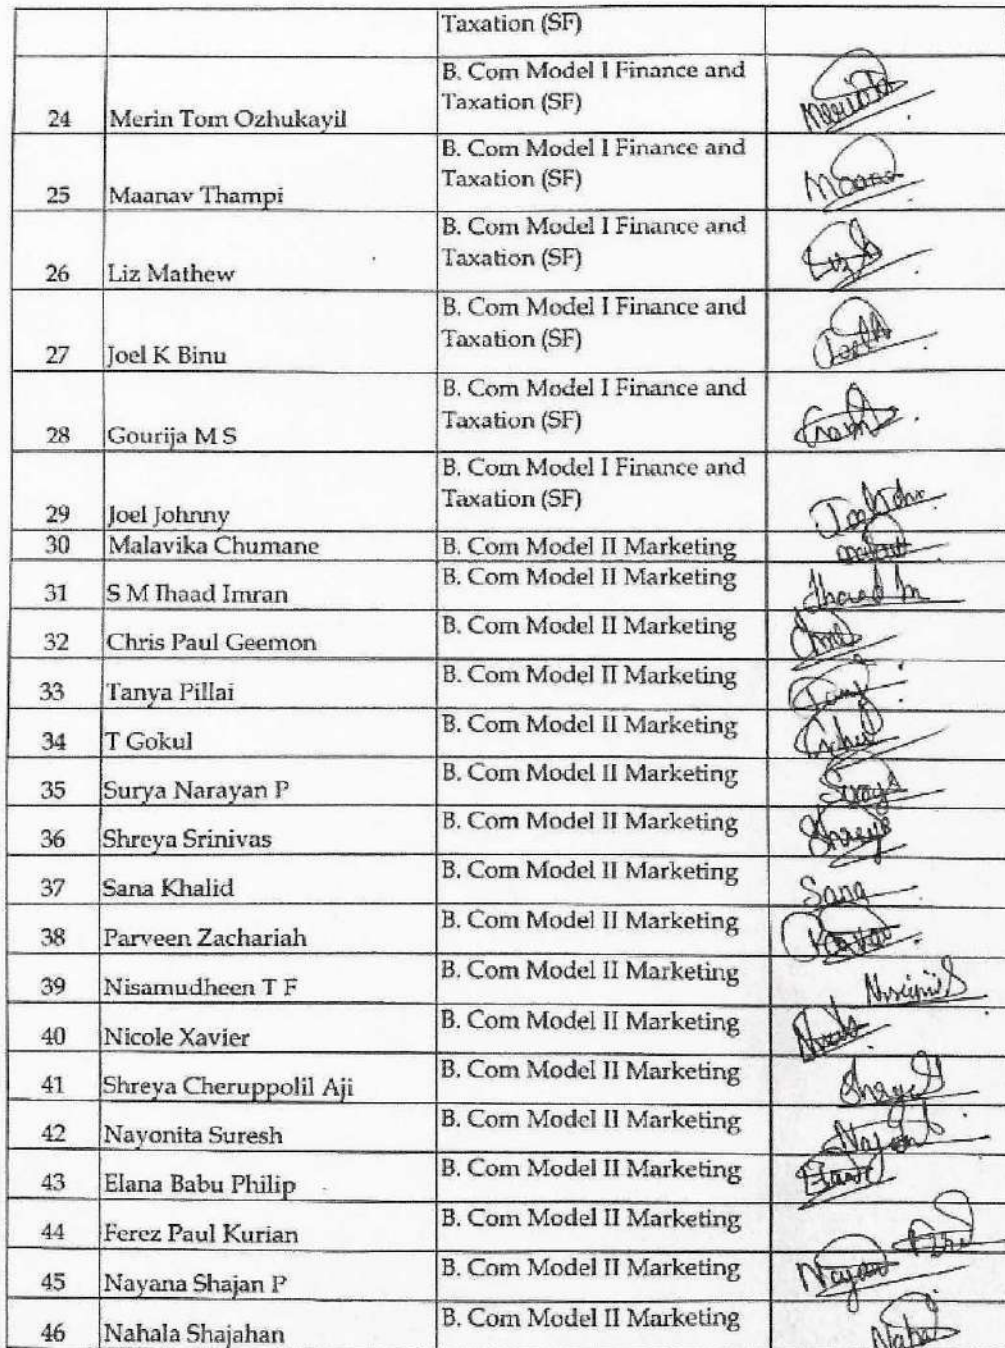 Taxation (SF)
B. Com Model I Finance and
24 Merin Tom Ozhukayil Taxation (SF)
B. Com Model I Finance and
25 Maanav Thampi Taxation (SF)
B. Com Model I Finance and
26 Liz Mathew Taxation (SF)
B. Com Model I Finance and
27 Joel K Binu Taxation (SF)
B. Com Model I Finance and
28 Gourija M S Taxation (SF)
B. Com Model I Finance and
29 Joel Johnny Taxation (SF)
30 Malavika Chumane B. Com Model II Marketing
31 S M Ihaad Imran B. Com Model II Marketing
32 Chris Paul Geemon B. Com Model II Marketing
33 Tanya Pillai B. Com Model II Marketing
34 T Gokul B. Com Model II Marketing
35 Surya Narayan P B. Com Model II Marketing
36 Shreya Srinivas B. Com Model II Marketing Shreya
37 Sana Khalid B. Com Model II Marketing Sana
38 Parveen Zachariah B. Com Model II Marketing
39 Nisamudheen T F B. Com Model II Marketing
40 Nicole Xavier B. Com Model II Marketing
41 Shreya Cheruppolil Aji B. Com Model II Marketing
42 Nayonita Suresh B. Com Model II Marketing
43 Elana Babu Philip B. Com Model II Marketing
44 Ferez Paul Kurian B. Com Model II Marketing
45 Nayana Shajan P B. Com Model II Marketing
46 Nahala Shajahan B. Com Model II Marketing